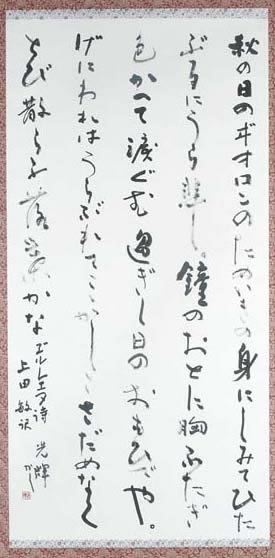 秋の日のヸオロンのためいきの身にしみてひた
ぶるにうら悲し。鐘のおとに胸ふたぎ
色かへて涙ぐむ過ぎし日のおもひでや。
げにわれはうらぶれてここかしこさだめなく
とび散らふ落葉かな
ヹルレエヌ詩
上田敏訳
光輝